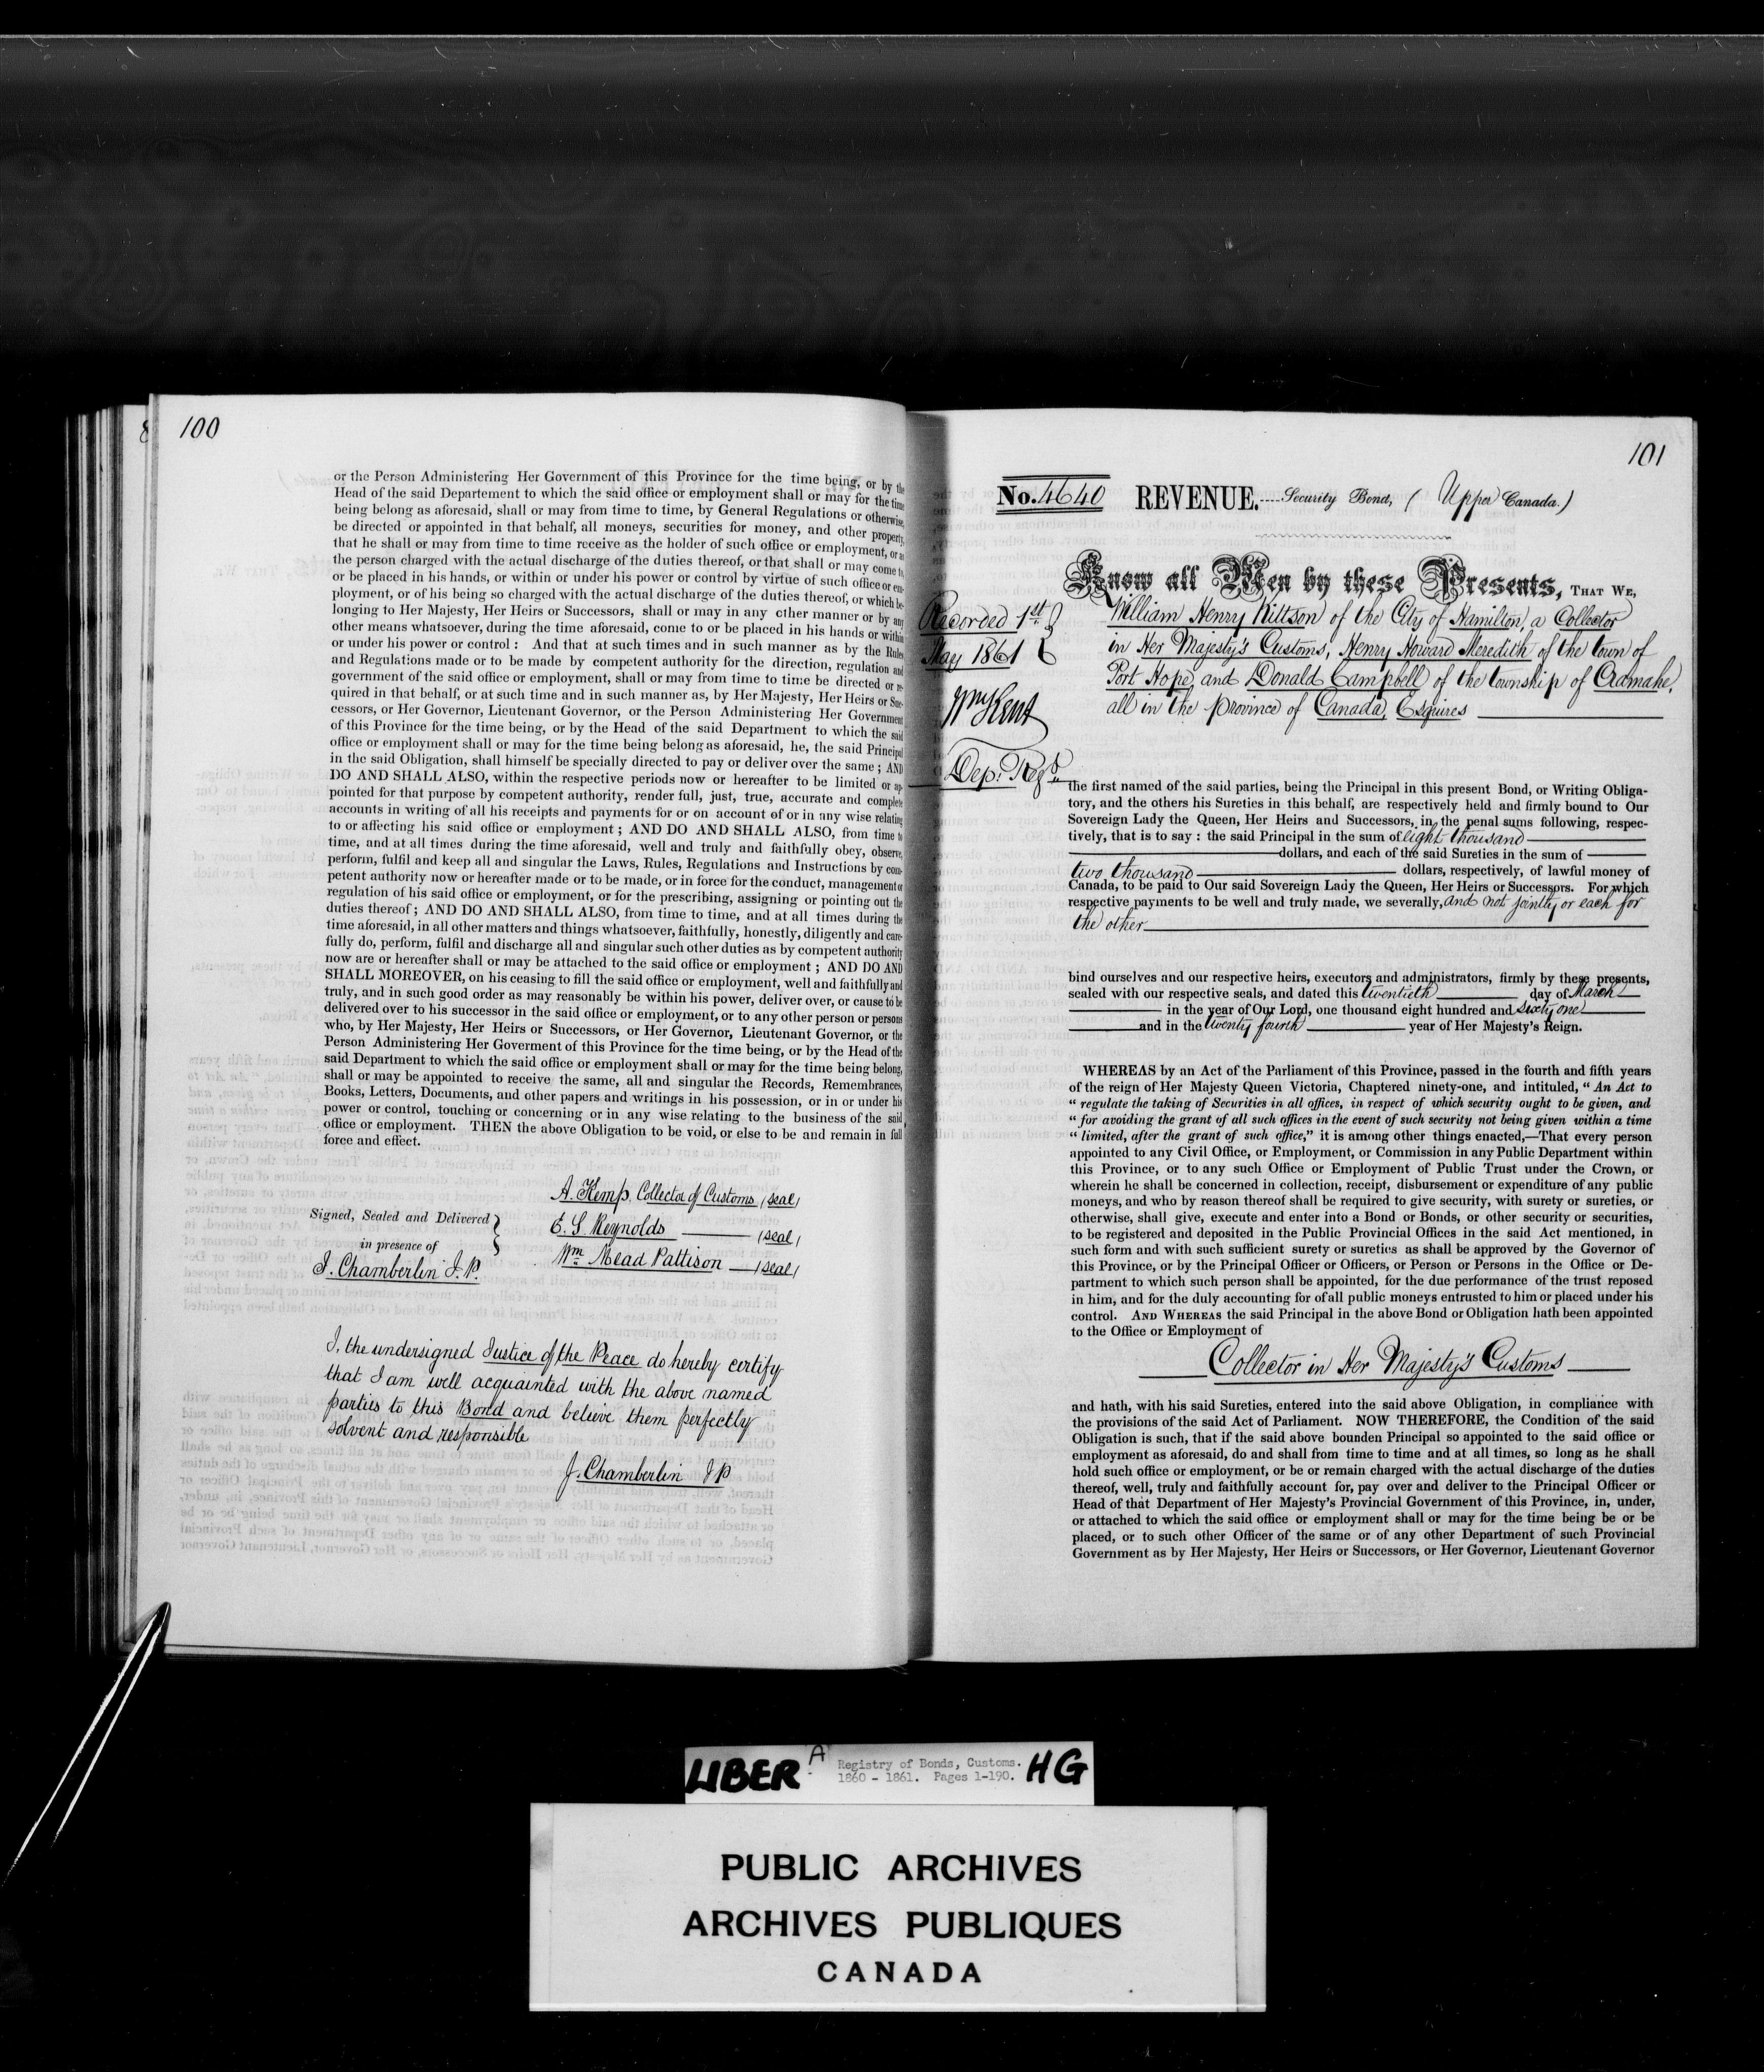 100
or the Person Administering Her Government of this Province for the time being, or by the
Head of the said Departement to which the said office or employment shall or may for the time
being belong as aforesaid, shall or may from time to time, by General Regulations or otherwise,
be directed or appointed in that behalf, all moneys, securities for money, and other property,
that he shall or may from time to time receive as the holder of such office or employment, or as
the person charged with the actual discharge of the duties thereof, or that shall or may come to,
or be placed in his hands, or within or under his power or control by virtue of such office or em-
ployment, or of his being so charged with the actual discharge of the duties thereof, or which be-
longing to Her Majesty, Her Heirs or Successors, shall or may in any other manner or by any
other means whatsoever, during the time aforesaid, come to or be placed in his hands or within
or under his power or control : And that at such times and in such manner as by the Rules
and Regulations made or to be made by competent authority for the direction, regulation and
government of the said office or employment, shall or may from time to time be directed or re-
quired in that behalf, or at such time and in such manner as, by Her Majesty, Her Heirs or Suc-
cessors, or Her Governor, Lieutenant Governor, or the Person Administering Her Government
of this Province for the time being, or by the Head of the said Department to which the said
office or employment shall or may for the time being belong as aforesaid, he, the said Principal
in the said Obligation, shall himself be specially directed to pay or deliver over the same ; AND
DO AND SHALL ALSO, within the respective periods now or hereafter to be limited or ap-
pointed for that purpose by competent authority, render full, just, true, accurate and complete
accounts in writing of all his receipts and payments for or on account of or in any wise relating
to or affecting his said office or employment ; AND DO AND SHALL ALSO, from time to
time, and at all times during the time aforesaid, well and truly and faithfully obey, observe,
perform, fulfil and keep all and singular the Laws, Rules, Regulations and Instructions by com-
petent authority now or hereafter made or to be made, or in force for the conduct, management or
regulation of his said office or employment, or for the prescribing, assigning or pointing out the
duties thereof ; AND DO AND SHALL ALSO, from time to time, and at all times during the
time aforesaid, in all other matters and things whatsoever, faithfully, honestly, diligently and care-
fully do, perform, fulfil and discharge all and singular such other duties as by competent authority
now are or hereafter shall or may be attached to the said office or employment ; AND DO AND
SHALL MOREOVER, on his ceasing to fill the said office or employment, well and faithfully and
truly, and in such good order as may reasonably be within his power, deliver over, or cause to be
delivered over to his successor in the said office or employment, or to any other person or persons
who, by Her Majesty, Her Heirs or Successors, or Her Governor, Lieutenant Governor, or the
Person Administering Her Goverment of this Province for the time being, or by the Head of the
said Department to which the said office or employment shall or may for the time being belong,
shall or may be appointed to receive the same, all and singular the Records, Remembrances,
Books, Letters, Documents, and other papers and writings in his possession, or in or under his
power or control, touching or concerning or in any wise relating to the business of the said
office or employment. THEN the above Obligation to be void, or else to be and remain in full
force and effect.
A. Kemp, Collector of Customs (seal)
Signed, Sealed and Delivered
E. S. Reynolds (seal)
in presence of
Wm Mead Pattison (seal)
J. Chamberlin J.P.
I, the undersigned Justice of the Peace do hereby certify
that I am well acquainted with the above named
parties to this Bond and believe them perfectly
solvent and responsible
J. Chamberlin J P
101
No. 4640 REVENUE.....Security Bond, ( Upper Canada.)
Know all Men by these Presents, THAT WE,
Recorded 1st
May 1861
Wm Kent
Dep. Regr
William Henry Kittson of the City of Hamilton, a Collector
in Her Majesty's Customs, Henry Howard Meredith of the town of
Port Hope, and Donald Campbell of the township of Cramahe,
all in the province of Canada, Esquires
the first named of the said parties, being the Principal in this present Bond, or Writing Obliga-
tory, and the others his Sureties in this behalf, are respectively held and firmly bound to Our
Sovereign Lady the Queen, Her Heirs and Successors, in the penal sums following, respec-
tively, that is to say : the said Principal in the sum of eight thousand
dollars, and each of the said Sureties in the sum of
two thousand dollars, respectively, of lawful money of
Canada, to be paid to Our said Sovereign Lady the Queen, Her Heirs or Successors. For which
respective payments to be well and truly made, we severally, and not jointly or each for
the other
bind ourselves and our respective heirs, executors and administrators, firmly by these presents,
sealed with our respective seals, and dated this twentieth day of March
in the year of Our Lord, one thousand eight hundred and sixty one
and in the twenty fourth year of Her Majesty's Reign.
WHEREAS by an Act of the Parliament of this Province, passed in the fourth and fifth years
of the reign of Her Majesty Queen Victoria, Chaptered ninety-one, and intituled, “ An Act to
“ regulate the taking of Securities in all offices, in respect of which security ought to be given, and
“ for avoiding the grant of all such offices in the event of such security not being given within a time
“ limited, after the grant of such office,” it is among other things enacted,—That every person
appointed to any Civil Office, or Employment, or Commission in any Public Department within
this Province, or to any such Office or Employment of Public Trust under the Crown, or
wherein he shall be concerned in collection, receipt, disbursement or expenditure of any public
moneys, and who by reason thereof shall be required to give security, with surety or sureties, or
otherwise, shall give, execute and enter into a Bond or Bonds, or other security or securities,
to be registered and deposited in the Public Provincial Offices in the said Act mentioned, in
such form and with such sufficient surety or sureties as shall be approved by the Governor of
this Province, or by the Principal Officer or Officers, or Person or Persons in the Office or De-
partment to which such person shall be appointed, for the due performance of the trust reposed
in him, and for the duly accounting for of all public moneys entrusted to him or placed under his
control. AND WHEREAS the said Principal in the above Bond or Obligation hath been appointed
to the Office or Employment of
Collector in Her Majesty's Customs
and hath, with his said Sureties, entered into the said above Obligation, in compliance with
the provisions of the said Act of Parliament. NOW THEREFORE, the Condition of the said
Obligation is such, that if the said above bounden Principal so appointed to the said office or
employment as aforesaid, do and shall from time to time and at all times, so long as he shall
hold such office or employment, or be or remain charged with the actual discharge of the duties
thereof, well, truly and faithfully account for, pay over and deliver to the Principal Officer or
Head of that Department of Her Majesty's Provincial Government of this Province, in, under,
or attached to which the said office or employment shall or may for the time being be or be
placed, or to such other Officer of the same or of any other Department of such Provincial
Government as by Her Majesty, Her Heirs or Successors, or Her Governor, Lieutenant Governor
LIBER A Registry of Bonds, Customs. HG
1860 - 1861. Pages 1-190.
PUBLIC ARCHIVES
ARCHIVES PUBLIQUES
CANADA